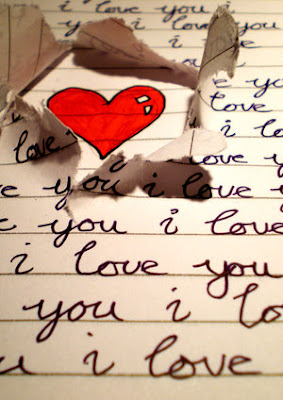 i love you i
love you
i love
you
love
i love
love i love
e you i love y
you i love
i love you
you i lo
u i love